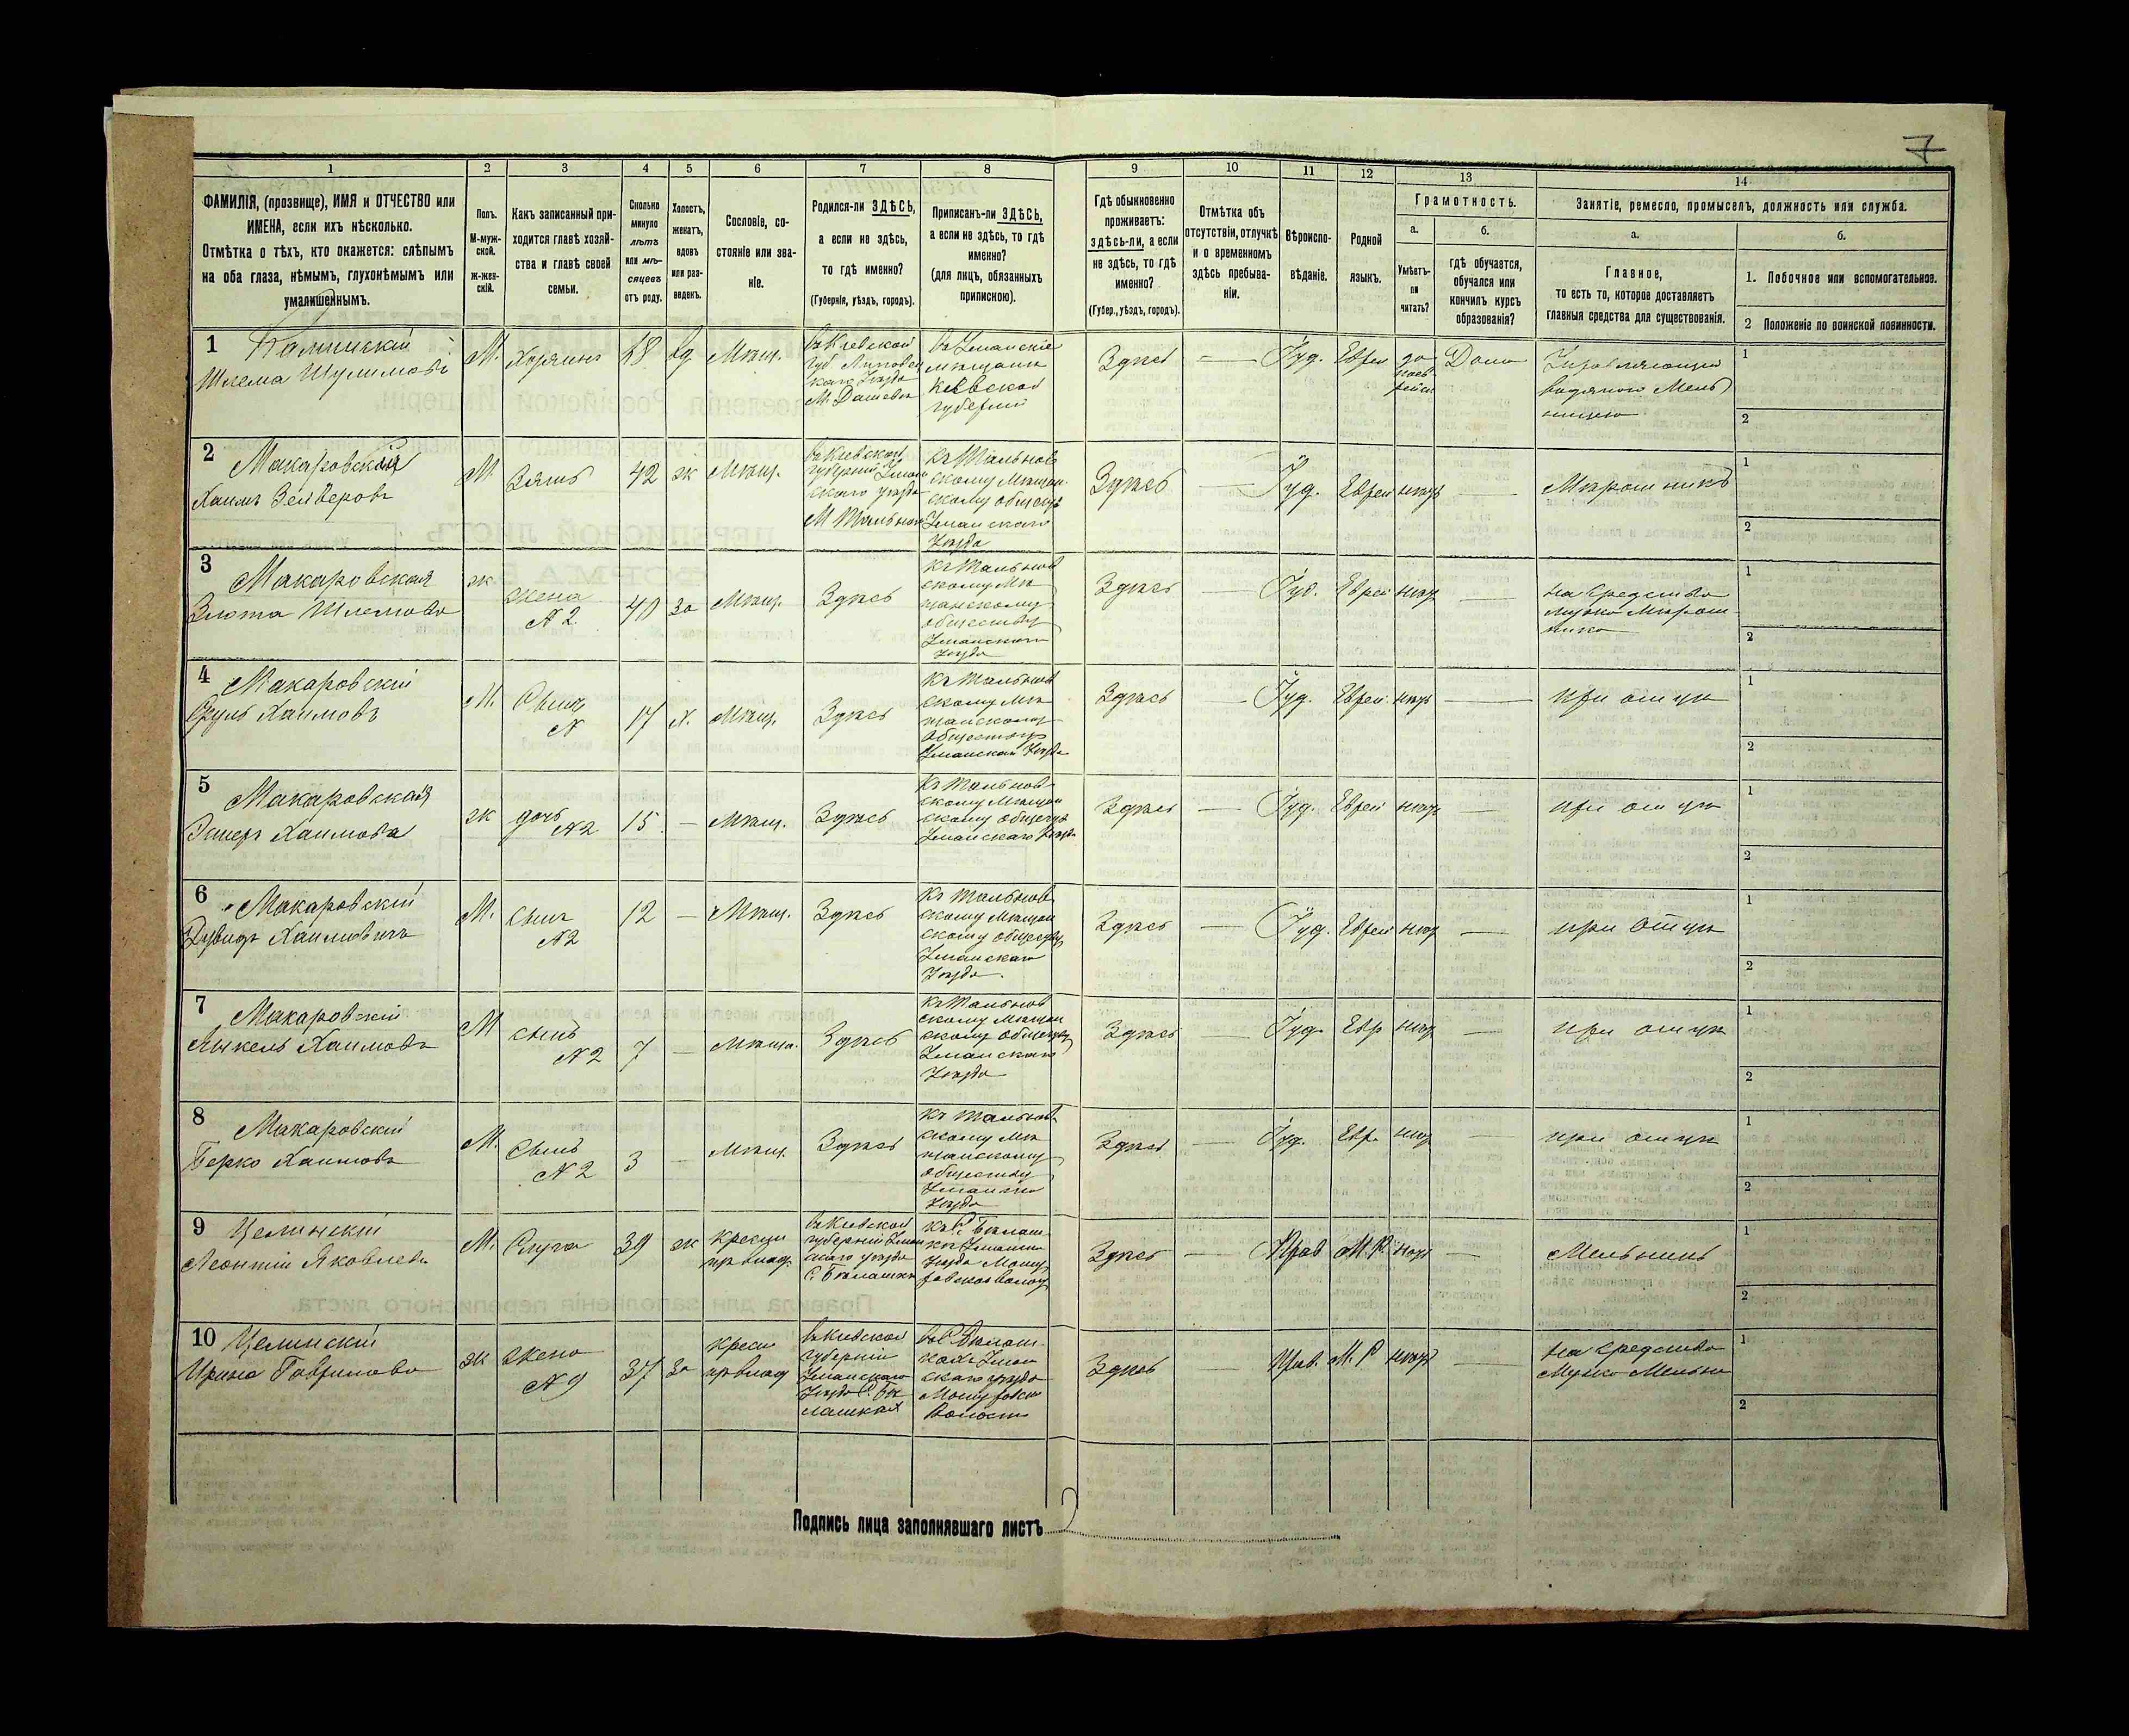 7
1 2 3 4 5 6 7 8 9 10 11 12 13 14
ФАМИЛІЯ, (прозвище), ИМЯ и ОТЧЕСТВО или
ИМЕНА, если ихъ нѣсколько.
Отмѣтка о тѣхъ, кто окажется: слѣпымъ
на оба глаза, нѣмымъ, глухонѣмымъ или
умалишеннымъ.
Полъ.
М-муж-
ской.
ж-жен-
скій.
Какъ записанный при-
ходится главѣ хозяй-
ства и главѣ своей
семьи.
Сколько
минуло
лѣтъ
или мѣ-
сяцевъ
отъ роду.
Холостъ,
женатъ,
вдовъ
или раз-
веденъ.
Сословіе, со-
стояніе или зва-
ніе.
Родился-ли ЗДѢСЬ,
а если не здѣсь,
то гдѣ именно?
(Губернія, уѣздъ, городъ).
Приписанъ-ли ЗДѢСЬ,
а если не здѣсь, то гдѣ
именно?
(для лицъ, обязанныхъ
припискою).
Гдѣ обыкновенно
проживаетъ:
здѣсь-ли, а если
не здѣсь, то гдѣ
именно?
(Губер., уѣздъ, городъ).
Отмѣтка объ
отсутствіи, отлучкѣ
и о временномъ
здѣсь пребыва-
ніи.
Вѣроиспо-
вѣданіе.
Родной
языкъ.
Грамотность.
а.
Умѣетъ-
ли
читать?
б.
гдѣ обучается,
обучался или
кончилъ курсъ
образованія?
Занятіе, ремесло, промыселъ, должность или служба.
а.
Главное,
то есть то, которое доставляетъ
главныя средства для существованія.
б.
1. Побочное или вспомогательное.
2 Положеніе по воинской повинности.
1
Шлема Шулимовъ
М. Хозяинъ вд Мѣщ.
въ Кіевской
губ Липовец
каго уѣзда
М. Дашевѣ
въ Уманскіе
мѣщане
Кіевской
губерніи
Здѣсь — Іуд. Еврей Дома
Управляющій
водяной мель
ницею
1
2
2 Макаровскій
Хаимъ Зейлеровъ
М Зять 42 ж Мѣщ.
въ Кіевской
губерніи Уман
скаго уѣзда
М Тальномъ
Къ Тальнов
скому Мѣщан
скому обществу
Уманскаго
Уѣзда
Здѣсь — Іуд. Еврей нѣтъ — Мѣрошникъ
1
2
3 Макаровская
Злота Шлемова
ж жена
N 2.
40 за Мѣщ. Здѣсь
Къ Тальнов
скому Мѣ
щанскому
обществу
Уманскаго
Уѣзда
Здѣсь — Іуд. Еврей нѣтъ —
На средства
мужа Мирош
ника
1
2
4 Макаровскій
Сруль Хаимовъ
М. Сынъ
N
17 х. Мѣщ. Здѣсь
Къ Тальнов
скому Мѣ
щанскому
Обществу
Уманскаго Уѣзда
Здѣсь — Іуд. Еврей нѣтъ — при отцѣ
1
2
5 Макаровская
Эстеръ Хаимова
ж дочь
N2
15 — Мѣщ. Здѣсь
Къ Тальнов
скому Мѣщан
скому обществу
Уманскаго Уѣзда
Здѣсь — Іуд. Еврей нѣтъ — при отцѣ
1
2
6 Макаровскій
Дувидъ Хаимовичъ
М. Сынъ
N2
12 — Мѣщ. Здѣсь
Къ Тальнов
скому Мѣщан
скому обществу
Уманскаго
Уѣзда.
Здѣсь — Іуд. Еврей нѣтъ — при отцѣ
1
2
7 Макаровскій
Янкель Хаимовъ
М сынъ
N2
7 — Мѣща. Здѣсь
Къ Тальнов
скому Мѣщан
скому обществу
Уманскаго
Уѣзда
Здѣсь — Іуд. Евр нѣтъ — при отцѣ
1
2
8 Макаровскій
Берко Хаимовъ
М. Сынъ
N2
3 — Мѣщ. Здѣсь
Къ Тальнов
скому Мѣ
щанскому
обществу
Уманска
Уѣзда
Здѣсь — Іуд. Евр. нѣтъ — при отцѣ
1
2
9 Целинскій
Леонтій Яковлевъ
М. Слуга 39 ж
крести
въ Кіевской
губерніи Уман
скаго уѣзда
С. Бѣлашки
Здѣсь — Прав М.Р. нѣтъ — Мельникъ
1
2
10 Целинскій
Ирина Гаврилова
ж жена
N 9
37 за
крести
въ Кіевской
губерніи
Уманскаго
Уѣзда С. Бѣ
лашкахъ
Здѣсь Прав. М. Р нѣтъ —
На средства
Мужа Мельни
1
2
Подпись лица заполнявшаго листъ